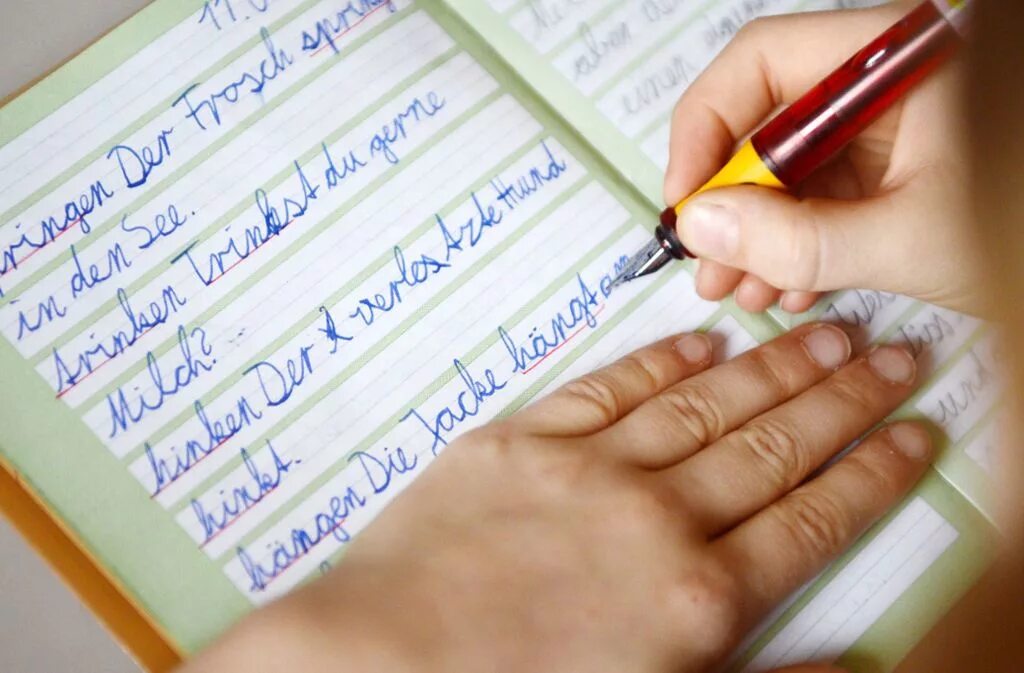 11.
ringen Der Frosch spring
in den See.
trinken Trinkst du gerne
Milch?
hinken Der verles Atzte Hund
hinkt.
hängen Die Jacke hängt am
aber
einen
und